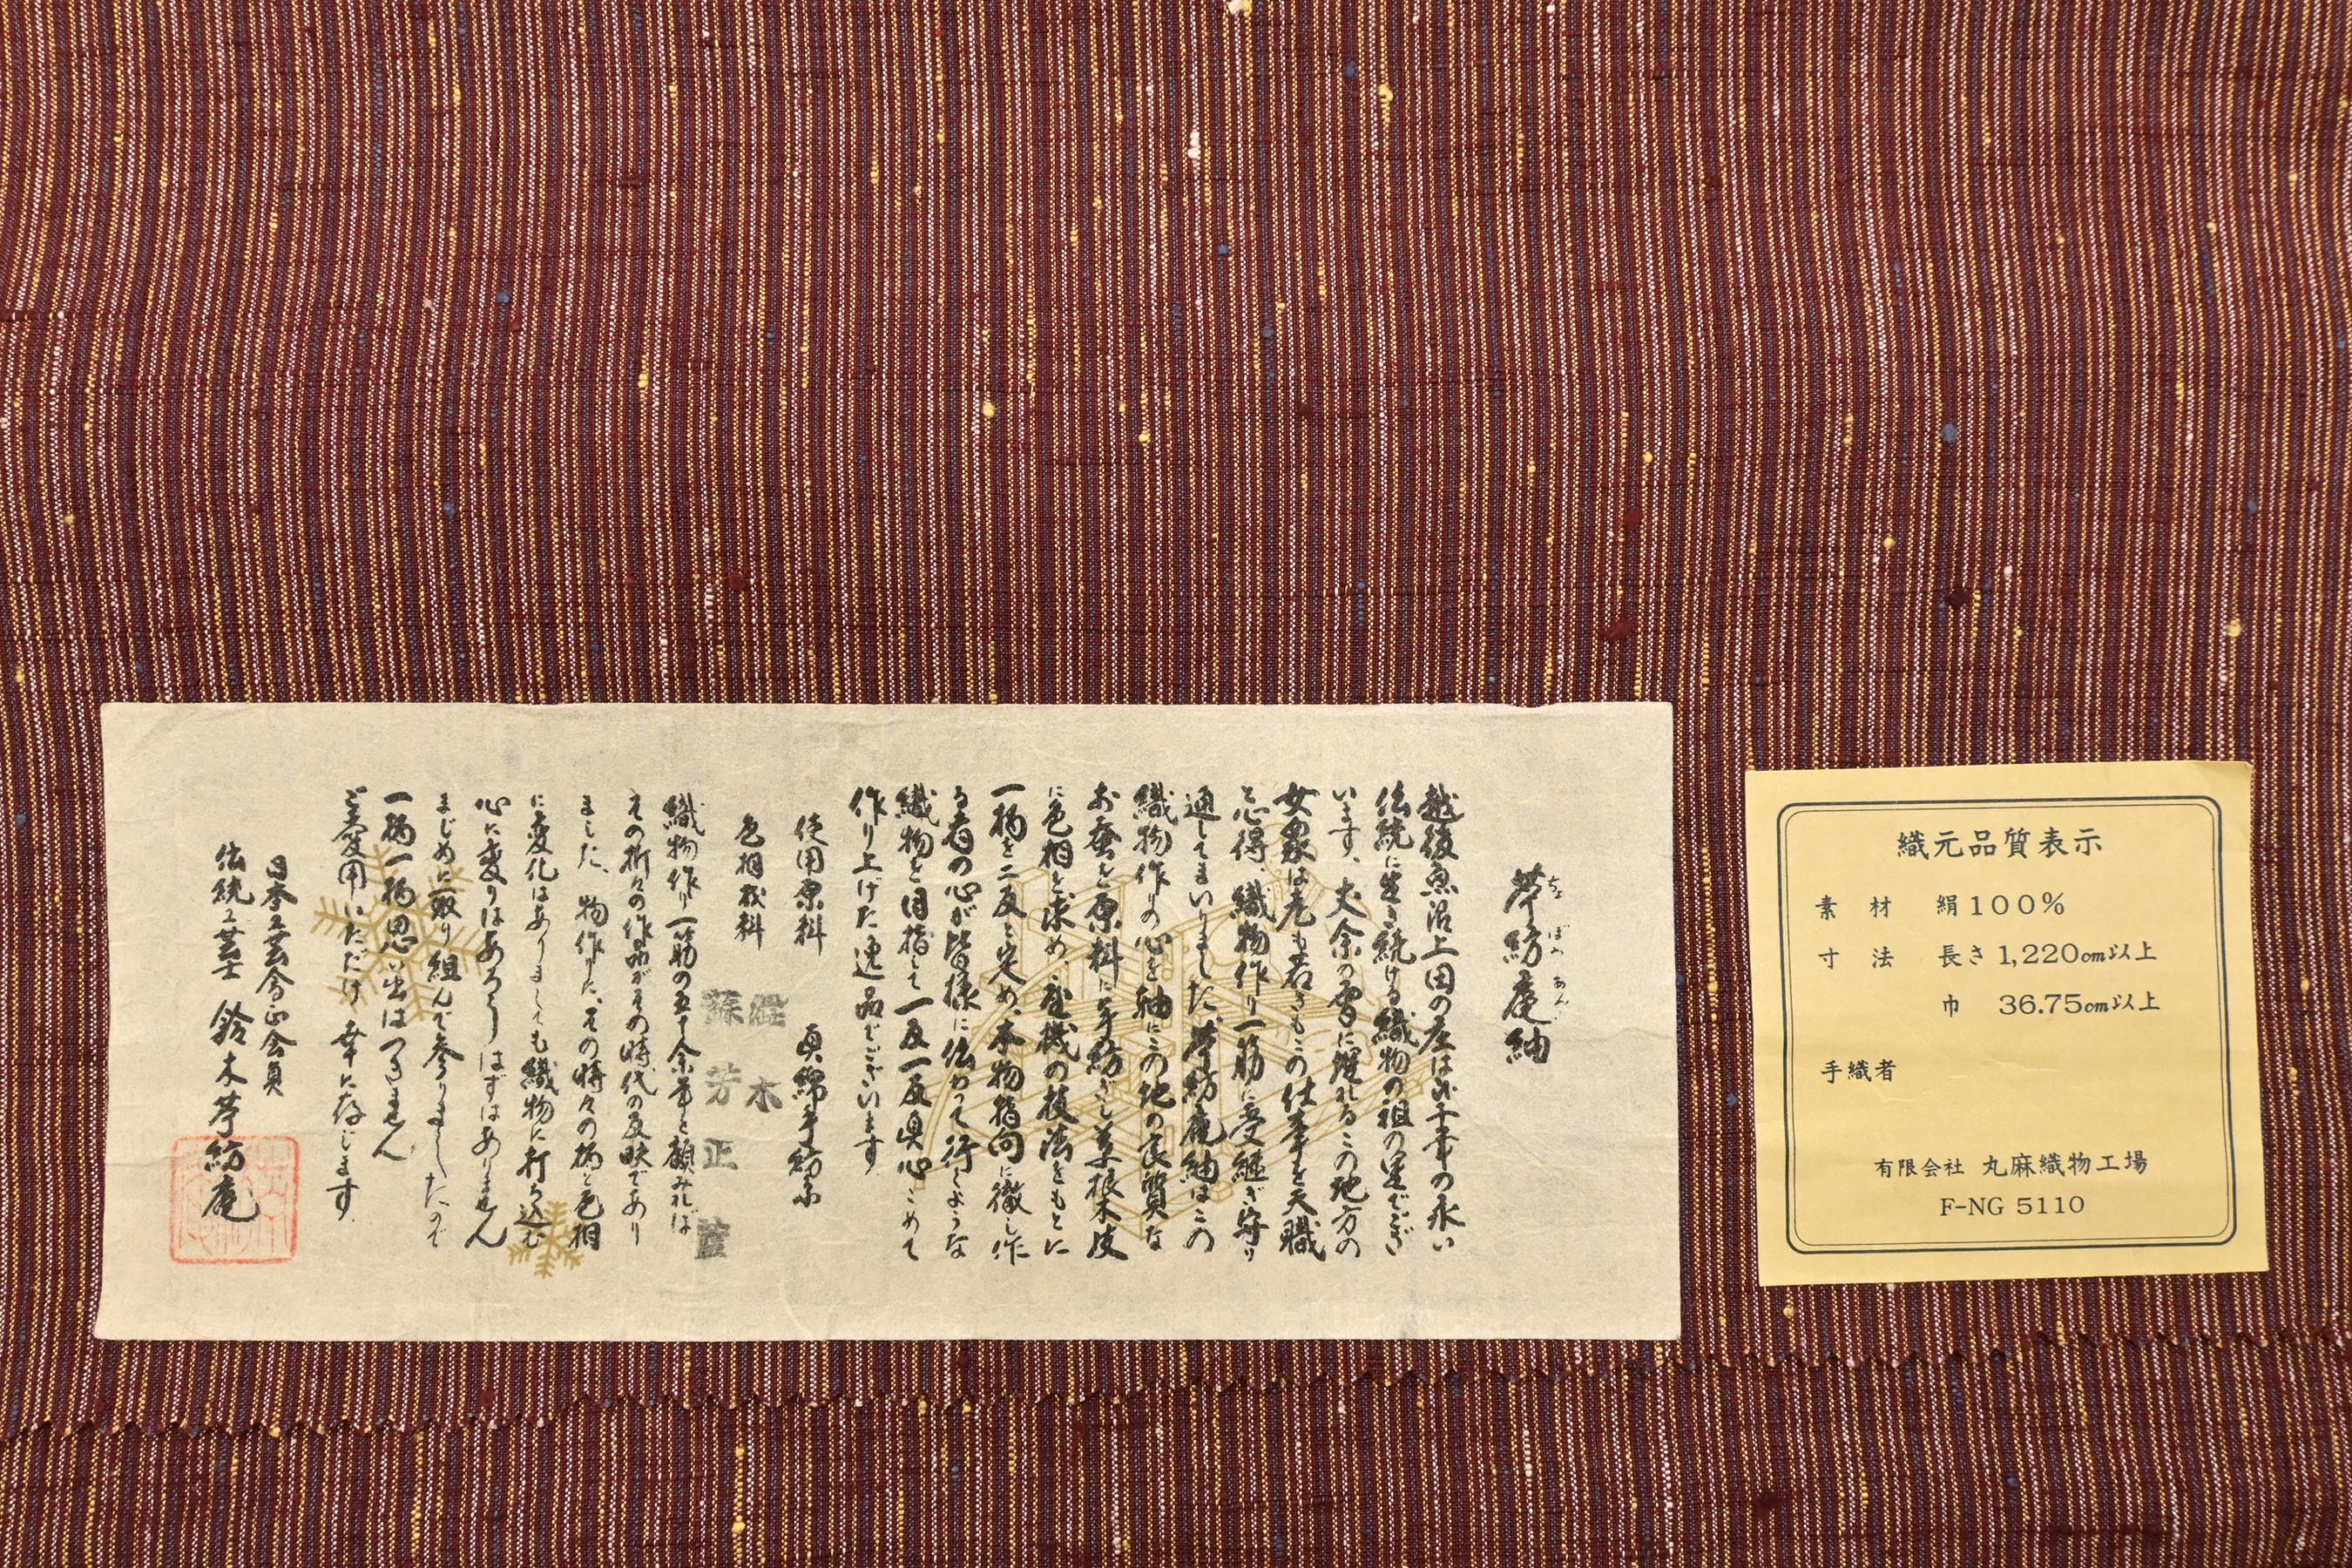 芧紡庵紬
ちょ ぼう あん
越後魚沼上田の庄は弐千年の永い
伝統に生き続ける織物の祖の里でござ
います、丈余の雪に埋れるこの地方の
女衆は老も若きもこの仕事を天職
と心得、織物作り一筋に受継ぎ守り
通してまいりました、芧紡庵紬はこの
織物作りの心を軸にこの地の良質な
お蚕を原料に手紡ぎし草根木皮
に色相を求め、座機の技法をもとに
一柄を二反と定め、本物指向に徹し作
る者の心が皆様に伝わって行くような
織物を目指して一反一反真心こめて
作り上げた逸品でございます
使用原料 真綿手紡糸
色相材料 渋木
蘇芳 正藍
織物作り一筋の五十余年を顧みれば
その折々の作品がその時代の反映であり
ました、物作りた、その時々の柄と色相
に変化はありましても織物に打ち込む
心に変りはあろうはずはありません
まじめに取り組んで参りましたので
一柄一柄思い出はつきません
ご愛用いただけ幸に存じます
日本工芸会正会員
伝統工芸士 鈴木芧紡庵
織元品質表示
素材 絹100%
寸法 長さ1,220cm以上
巾 36.75cm以上
手織者
有限会社 丸麻織物工場
F-NG 5110